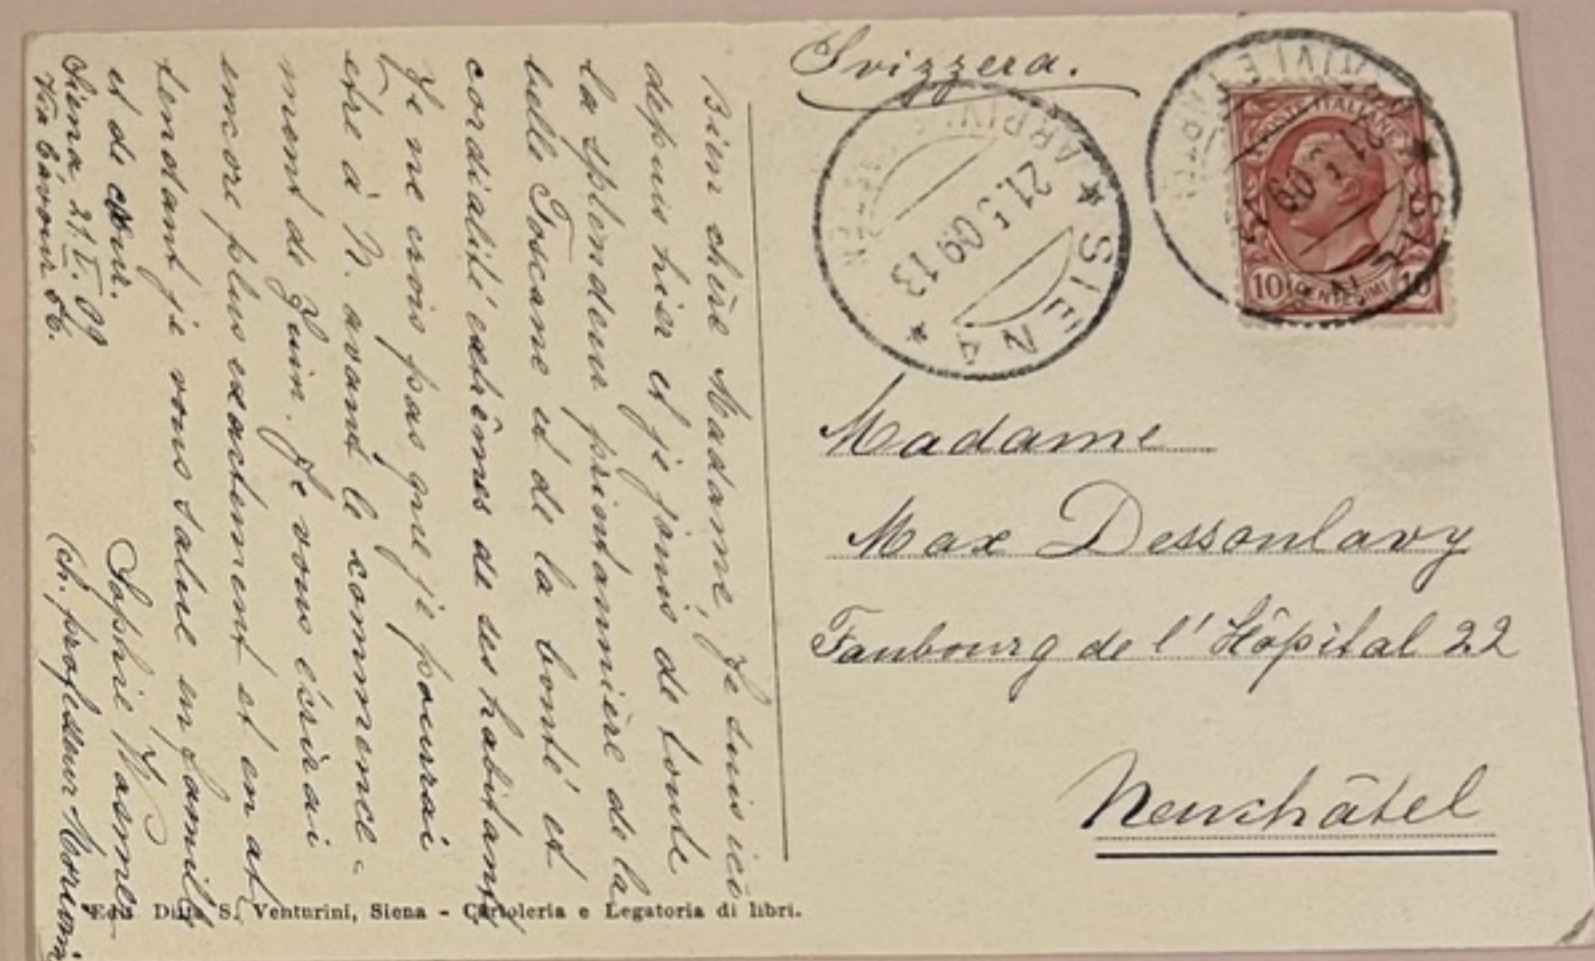 Svizzera.
POSTE ITALIANE
10 CENTESIMI 10
* SIENA *
21. 5. 09. 13
* SIENA
21. 5. 09
Madame
Max Dessoulavy
Faubourg de l'Hôpital 22
Neuchâtel
Bien chère Madame, Je suis ici
depuis hier et je jouis de toute
la splendeur printannière de la
belle Toscane et de la bonté et
cordialité extrêmes de ses habitants
Je ne crois pas que je pourrai
être à N. avant le commence-
ment de Juin. Je vous écrirai
encore plus exactement et en at-
tendant je vous salue en famille
et de cœur.
Sophie
Siena 21. V. 09
(ch. professeur
Via Cavour 56.
Edit. Ditta S. Venturini, Siena - Cartoleria e Legatoria di libri.